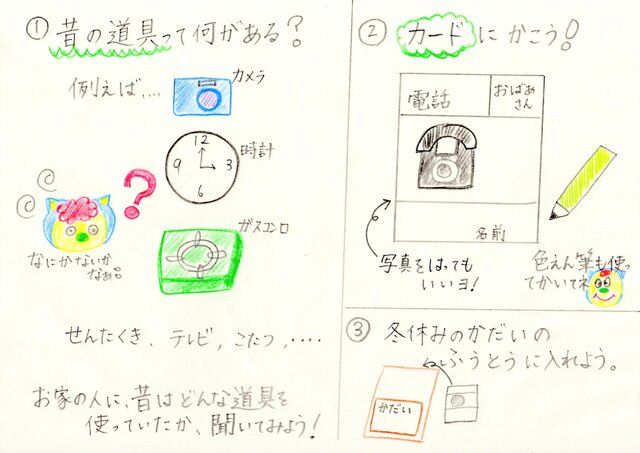 ① 昔の道具って何がある?
例えば、...
カメラ
12
9 3
6
時計
?
ガスコンロ
なにかないか
なぁ。
せんたくき、テレビ、こたつ、····
お家の人に、昔はどんな道具を
使っていたか、聞いてみよう!
② カードにかこう!
電話
おばあ
さん
名前
写真をはっても
いいヨ!
色えん筆も使っ
てかいてネ
③ 冬休みのかだいの
ふうとうに入れよう。
かだい